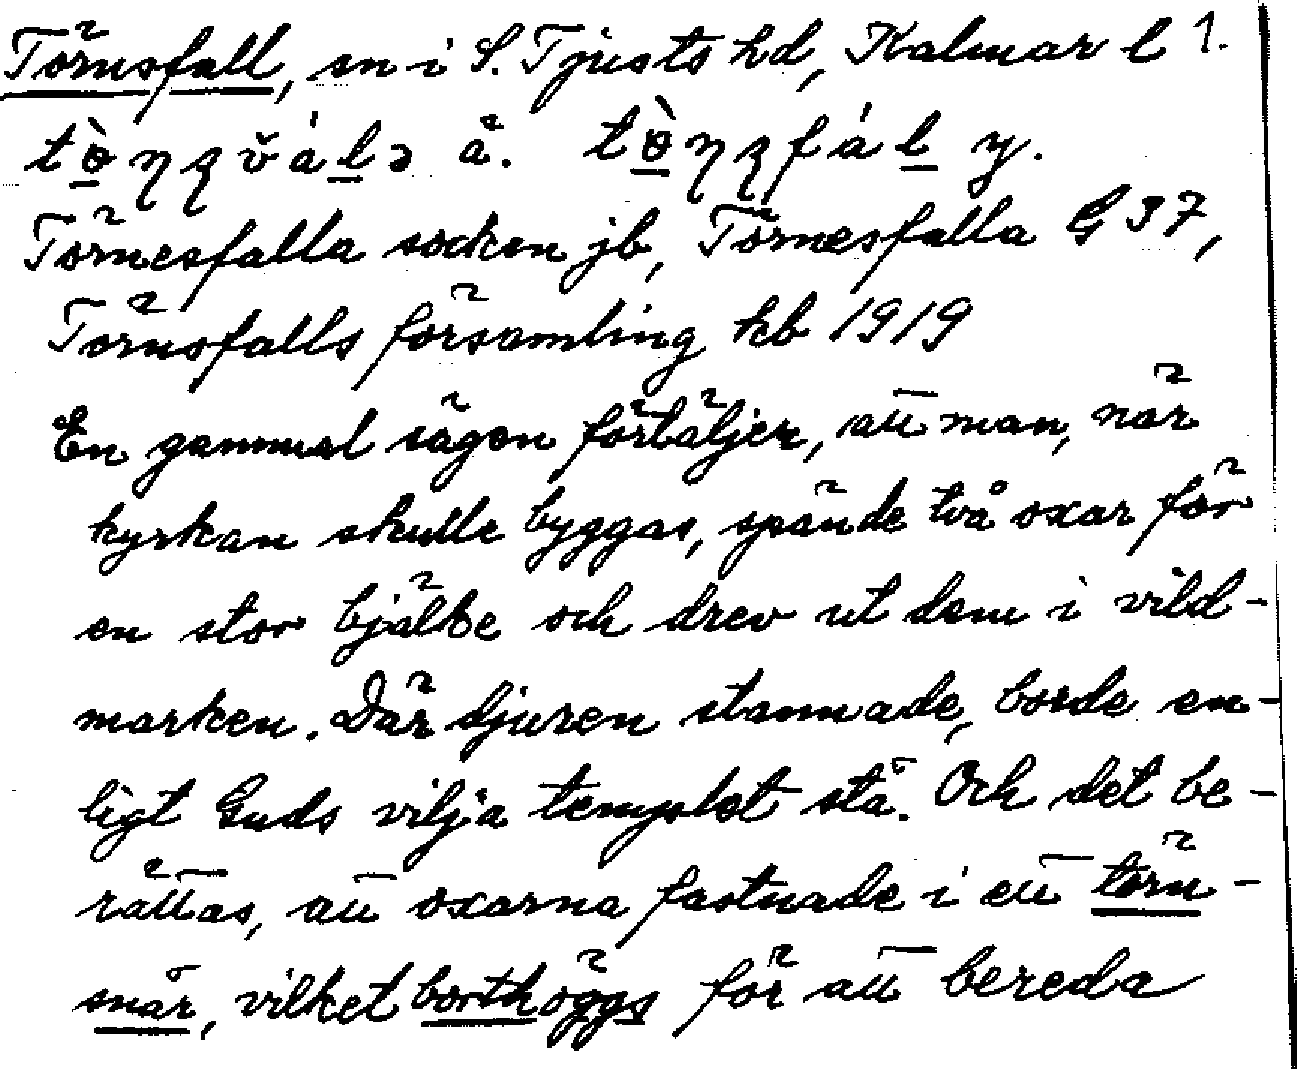 Törnsfall, sn i S. Tjusts hd, Kalmar l 1.
å. y.
Törnesfalla socken jb, Törnesfalla G 37,
Törnsfalls församling kb 1919
En gammal sägen förtäljer, att man, när
kyrkan skulle byggas, spände två oxar för
en stor bjälke och drev ut dem i vild-
marken. Där djuren stannade, borde en-
ligt Guds vilja templet stå. Och det be-
rättas, att oxarna fastnade i ett törn-
snår, vilket borthöggs för att bereda